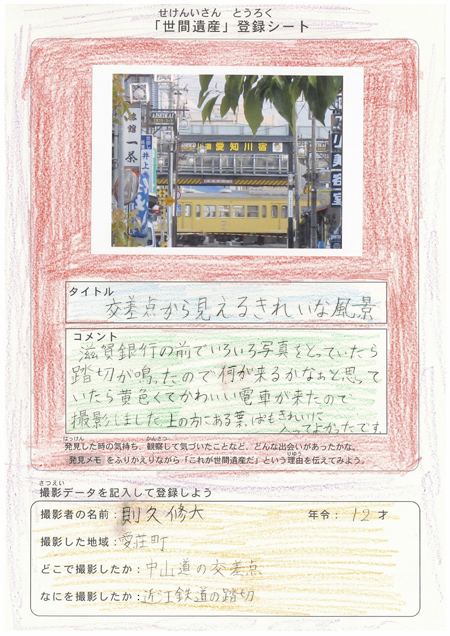 せけんいさん とうろく
「世間遺産」登録シート
旅館
一茶
井上
愛知川宿
タイトル
交差点から見えるきれいな風景
コメント
滋賀銀行の前でいろいろ写真をとっていたら
踏切が鳴ったので何が来るかなぁと思って
いたら黄色くてかわいい電車が来たので
撮影しました 上の方にある葉っぱもきれいに
入ってよかったです。
はっけん かんさつ
発見した時の気持ち、観察して気づいたことなど、どんな出会いがあったかな。
りゆう
発見メモ をふりかえりながら「これが世間遺産だ」という理由を伝えてみよう。
さつえい
撮影データを記入して登録しよう
撮影者の名前：則久修大 年令：12才
撮影した地域：愛荘町
どこで撮影したか：中山道の交差点
なにを撮影したか：近江鉄道の踏切